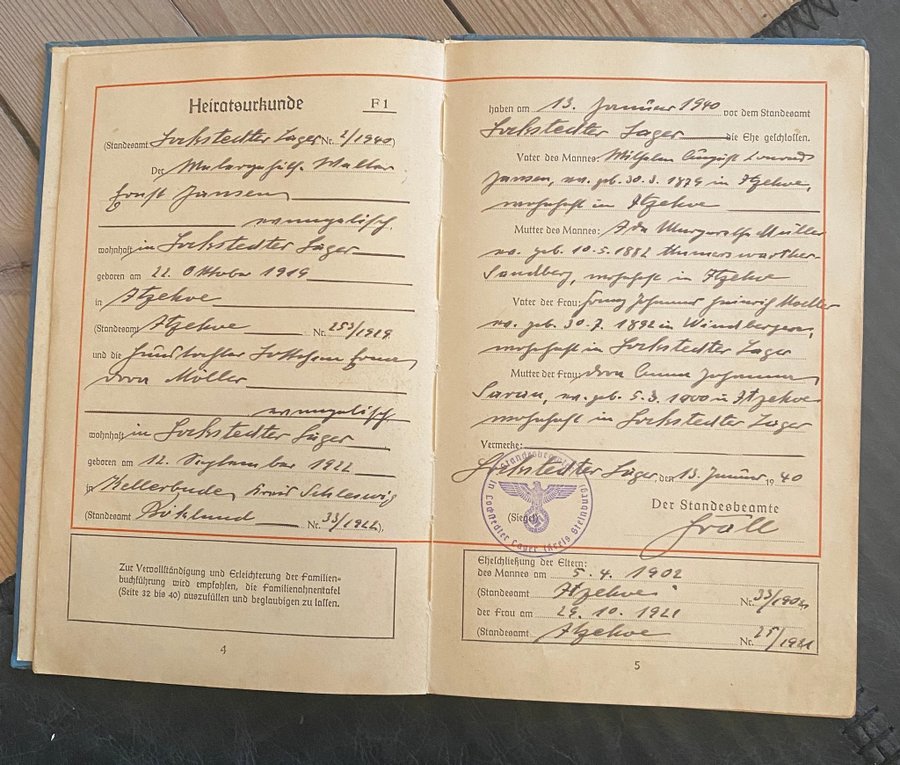 Heiratsurkunde F1
(Standesamt Lockstedter Lager Nr. 2/1940)
Der Malergehilfe Walter
Ernst Jansen
evangelisch
wohnhaft in Lockstedter Lager
geboren am 22. Oktober 1919
in Itzehoe
(Standesamt Itzehoe Nr. 253/1919
und die Haustochter
Dora Möller
evangelisch
wohnhaft in Lockstedter Lager
geboren am 12. September 1922
in Kreis Schleswig
(Standesamt Böklund Nr. 33/1922)
Zur Vervollständigung und Erleichterung der Familien-
buchführung wird empfohlen, die Familienahnentafel
(Seite 32 bis 40) auszufüllen und beglaubigen zu lassen.
4
haben am 13. Januar 1940 vor dem Standesamt
Lockstedter Lager die Ehe geschlossen.
Vater des Mannes: Wilhelm August
Jansen, ev. geb. 30.3.1879 in Itzehoe,
wohnhaft in Itzehoe
Mutter des Mannes: Ada Margaretha Müller
ev. geb. 10.5.1882
wohnhaft in Itzehoe
Vater der Frau: Franz Johannes Heinrich Moeller
ev. geb. 30.7.1892 in Windbergen,
wohnhaft in Lockstedter Lager
Mutter der Frau: Dora Anna Johanna
ev. geb. 5.3.1900 in Itzehoe
wohnhaft in Lockstedter Lager
Vermerke:
Lockstedter Lager, den 13. Januar 1940
Der Standesbeamte
(Siegel)
Standesbeamte in Lockstedter Lager (Kreis Steinburg)
Eheschließung der Eltern:
des Mannes am 5.4.1902
(Standesamt Itzehoe Nr. 33/1902
der Frau am 29.10.1921
(Standesamt Itzehoe Nr. /1921
5